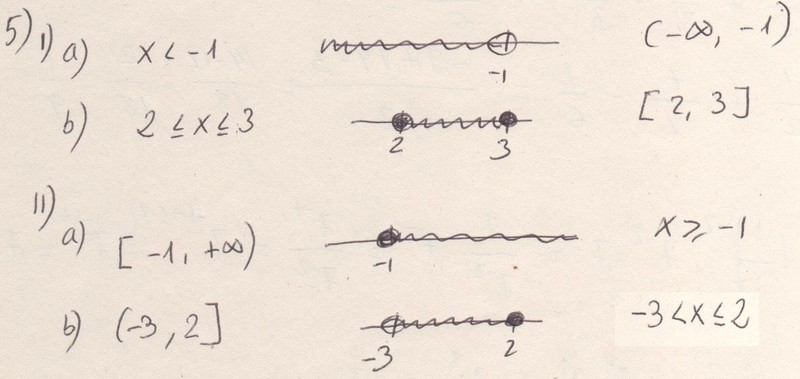 5) I) a) x < -1 -1 (-∞, -1)
b) 2 ≤ x ≤ 3 2 3 [2, 3]
II) a) [-1, +∞) -1 x ≥ -1
b) (-3, 2] -3 2 -3 < x ≤ 2